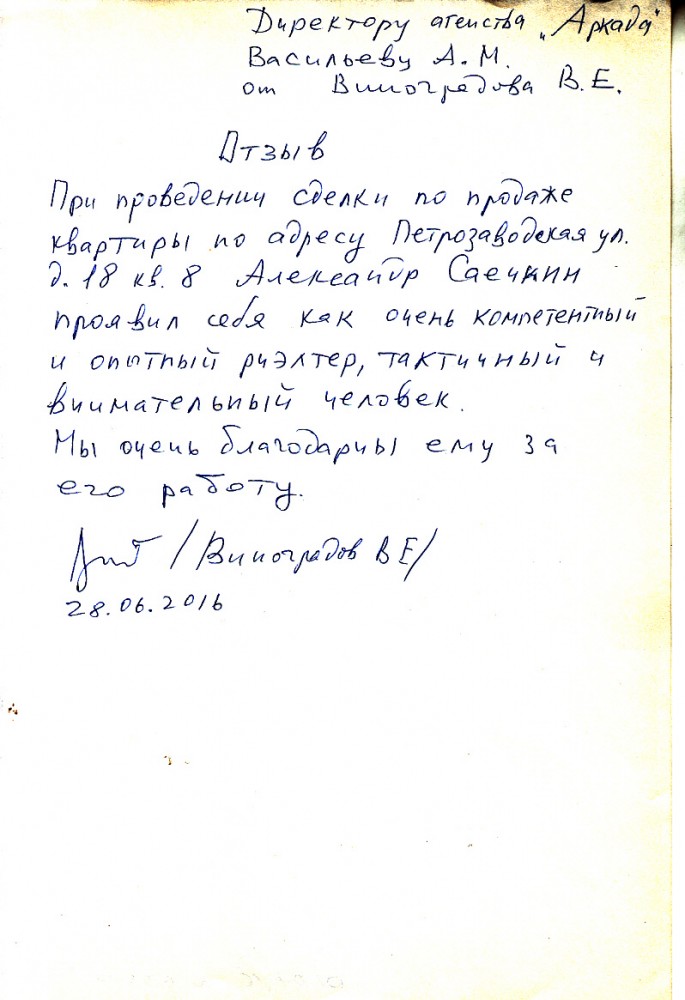 Директору агенства „Аркада"
Васильеву А.М.
от Виноградова В.Е.
Отзыв
При проведении сделки по продаже
квартиры по адресу Петрозаводская ул.
д. 18 кв. 8 Александр Саечкин
проявил себя как очень компетентный
и опытный риэлтер, тактичный и
внимательный человек.
Мы очень благодарны ему за
его работу.
/Виноградов В Е/
28.06.2016